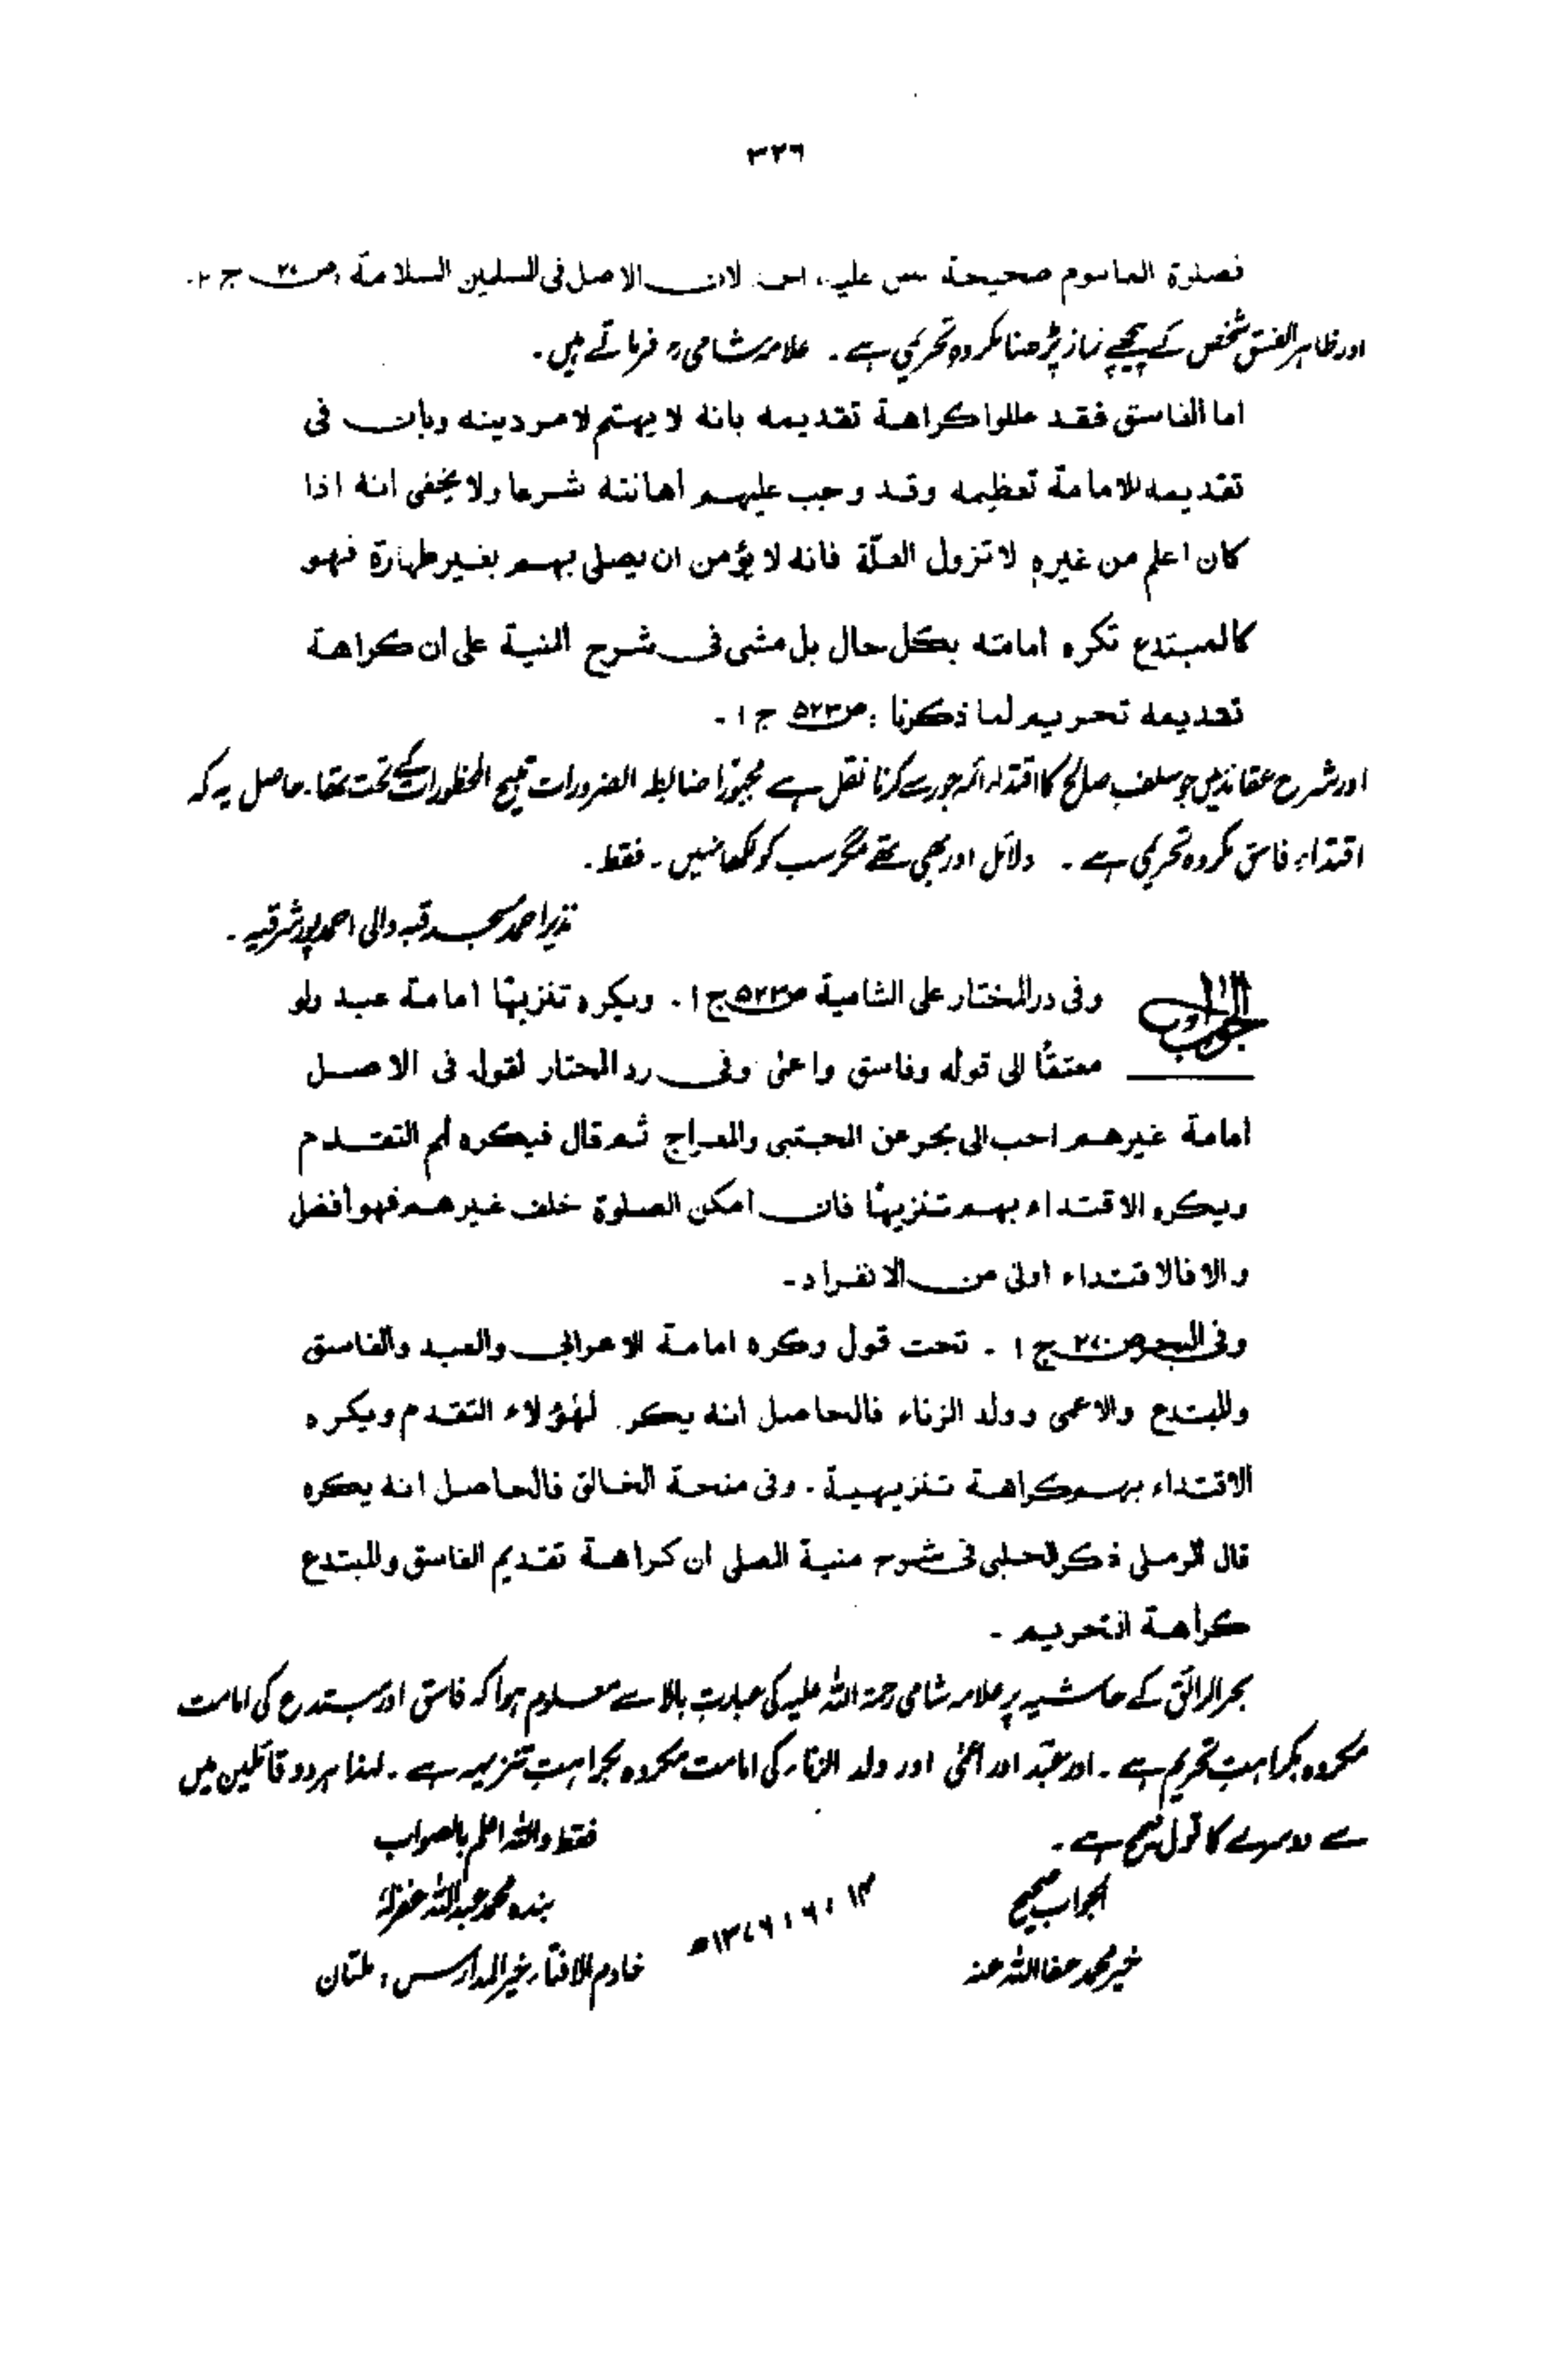 ۳۲۶
فصلوة الماموم صحيحة نص عليه لان الاصل فى المسلمين السلامة ص۲۰ ج ۲۔
اور ظاہر الفسق شخص کے پیچھے نماز پڑھنا مکروہ تحریمی ہے۔ علامہ شامی رح فرماتے ہیں۔
اما الفاسق فقد عللوا كراهة تقديمه بانه لا يهتم لامر دينه وبان فى
تقديمه للامامة تعظيمه وقد وجب عليهم اهانته شرعا ولا يخفى انه اذا
كان اعلم من غيره لا تزول العلّة فانه لا يؤمن ان يصلى بهم بغير طهارة فهو
كالمبتدع تكره امامته بكل حال بل مشى فى شرح المنية على ان كراهة
تقديمه تحريم لما ذكرنا : ص۵۲۳ ج ۱۔
اور شرح عقائد میں جو سلف صالح کا اقتداء ائمہ جور سے کرنا نقل ہے مجبوراً ضابطہ الضرورات تبیح المحظورات کے تحت تھا۔ حاصل یہ کہ
اقتداء فاسق مکروہ تحریمی ہے۔ دلائل اور بھی تھے مگر سب کو لکھا نہیں۔ فقط۔
نذیر احمد مسجد قبہ والی احمد پور شرقیہ۔
الجواب وفى درالمختار على الشامية ص۵۲۳ ج ۱۔ ويكره تنزيهًا امامة عبد ولو
معتقًا الى قوله وفاسق واعمٰى وفى رد المحتار لقوله فى الاصل
امامة غيرهم احب الى بحر عن المجتبى والمعراج ثم قال فيكره لهم التقدم
ويكره الاقتداء بهم تنزيهًا فان امكن الصلوة خلف غيرهم فهو أفضل
والا فالاقتداء اولىٰ من الانفراد۔
وفى البحر ص۳۷۰ ج ۱۔ تحت قول وكره امامة الاعرابى والعبد والفاسق
والمبتدع والاعمى وولد الزناء فالحاصل انه يكره لهٰؤلاء التقدم ويكره
الاقتداء بهم كراهة تنزيهية۔ وفى منحة الخالق فالحاصل انه يكره
قال الرملى ذكر الحلبى فى شرح منية المصلى ان كراهة تقديم الفاسق والمبتدع
كراهة التحريم۔
بحرالرائق کے حاشیہ پر علامہ شامی رحمۃ اللہ علیہ کی عبارت بالا سے معلوم ہوا کہ فاسق اور مبتدع کی امامت
مکروہ بکراہت تحریم ہے۔ اور عبد اور اعمٰی اور ولد الزناء کی امامت مکروہ بکراہت تنزیہہ ہے۔ لہٰذا ہر دو قائلین میں
سے دوسرے کا قول صحیح ہے۔
فقط واللہ اعلم بالصواب
الجواب صحیح
بندہ محمد عبداللہ غفرلہٗ
خیر محمد عفا اللہ عنہ
۱۳۷۹ھ
خادم الافتاء خیر المدارس، ملتان